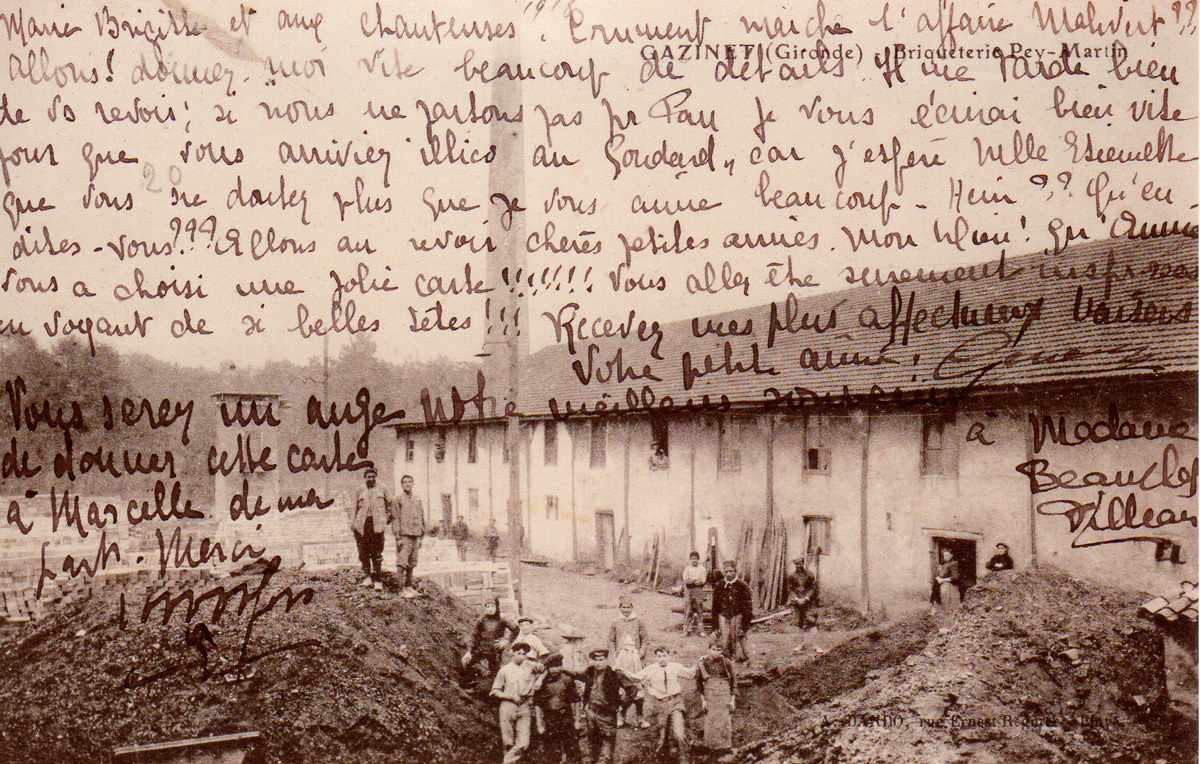 Marie Brigitte et aux chanteuses. Comment marche l'affaire Malivert ??
GAZINET (Gironde) - Briqueterie Pey-Martin
allons! donnez-moi vite beaucoup de détails. Il me tarde bien
de vs revoir; si nous ne partons pas pr Pau je vous écrirai bien vite
pour que vous arriviez illico au car j'espère Mlle
que vous ne doutez plus que je vous aime beaucoup - Hein?? Qu'en
dites-vous??? Allons au revoir chères petites amies. Mon Dieu! qu'
vous a choisi une jolie carte!!!!!!! Vous allez être surement
en voyant de si belles têtes!!! Recevez mes plus affectueux baisers
Votre petite amie.
Vous serez un ange Notre meilleur
de donner cette carte
à Marcelle de ma
part. Merci
à Madame
A. DANDO, rue Ernest